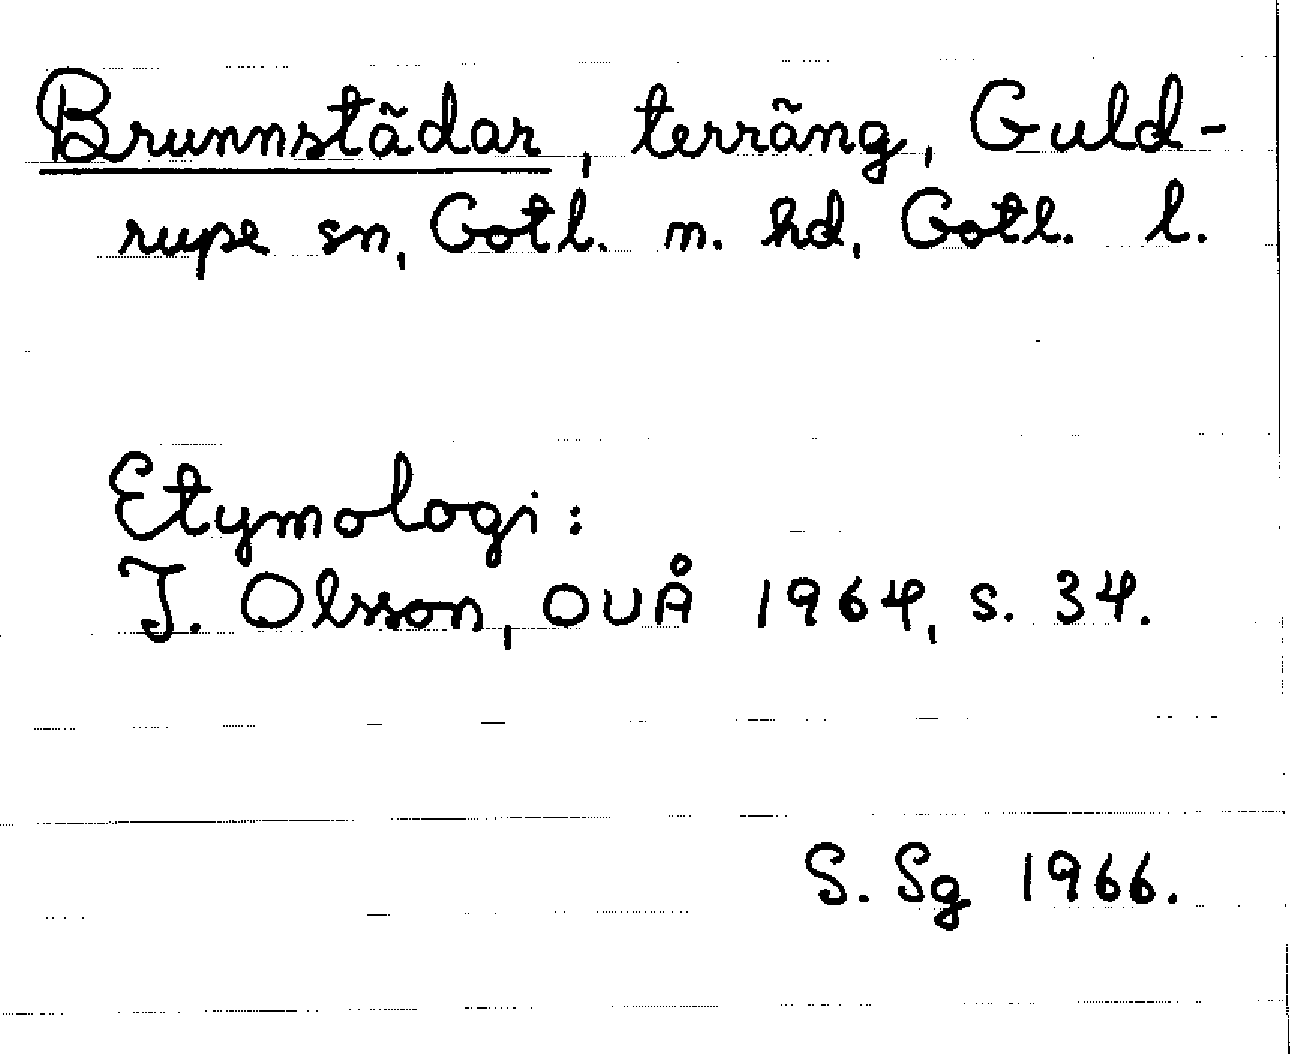 Brunnstädar, terräng, Guld-
rupe sn, Gotl. n. hd, Gotl. l.
Etymologi:
I. Olsson, OUÅ 1964, s. 34.
S. Sg 1966.